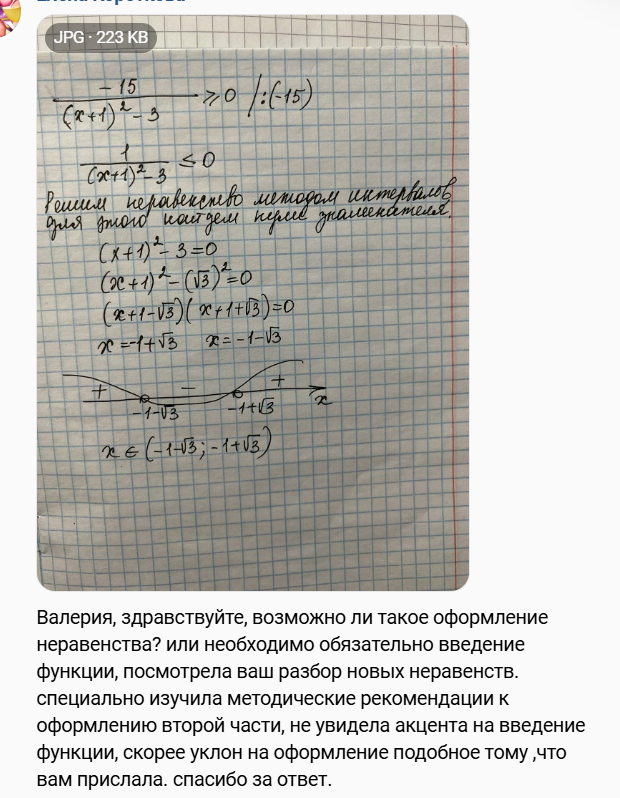 JPG · 223 KB
-15
/ (x+1)² - 3 ≥ 0 /:(-15)
1
/ (x+1)² - 3 ≤ 0
Решим неравенство методом интервалов,
для этого найдем нули знаменателя.
(x+1)² - 3 = 0
(x+1)² - (√3)² = 0
(x+1-√3)(x+1+√3)=0
x = -1+√3 x = -1-√3
+ - +
-1-√3 -1+√3 x
x ∈ (-1-√3; -1+√3)
Валерия, здравствуйте, возможно ли такое оформление
неравенства? или необходимо обязательно введение
функции, посмотрела ваш разбор новых неравенств.
специально изучила методические рекомендации к
оформлению второй части, не увидела акцента на введение
функции, скорее уклон на оформление подобное тому ,что
вам прислала. спасибо за ответ.